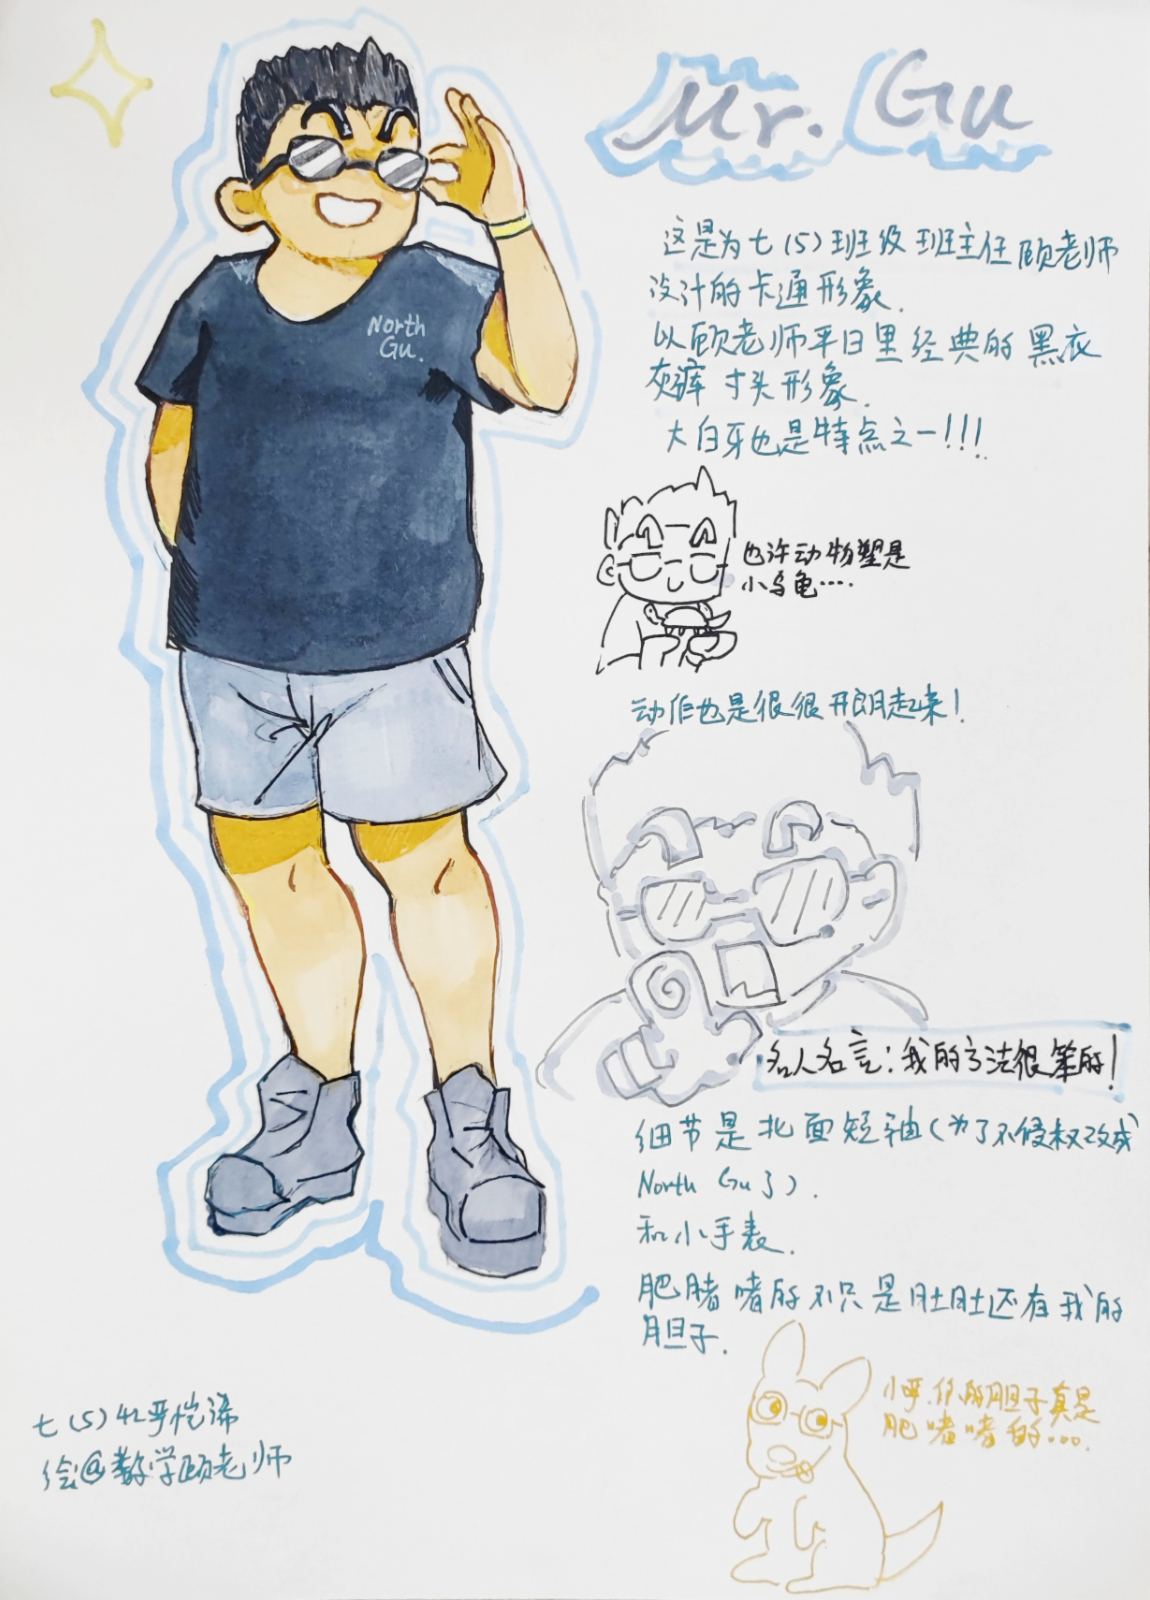 Mr. Gu
North
Gu.
这是为七(5)班级班主任顾老师
设计的卡通形象.
以顾老师平日里经典的黑衣
灰裤寸头形象.
大白牙也是特点之一!!!
也许动物塑是
小乌龟····
动作也是很很开朗起来!
名人名言:我的方法很笨的!
细节是北面短袖(为了不侵权改成
North Gu了).
和小手表.
肥嘟嘟的不只是肚肚还有我的
胆子.
你的胆子真是
肥嘟嘟的····
七(5)42严恺
绘@数学顾老师